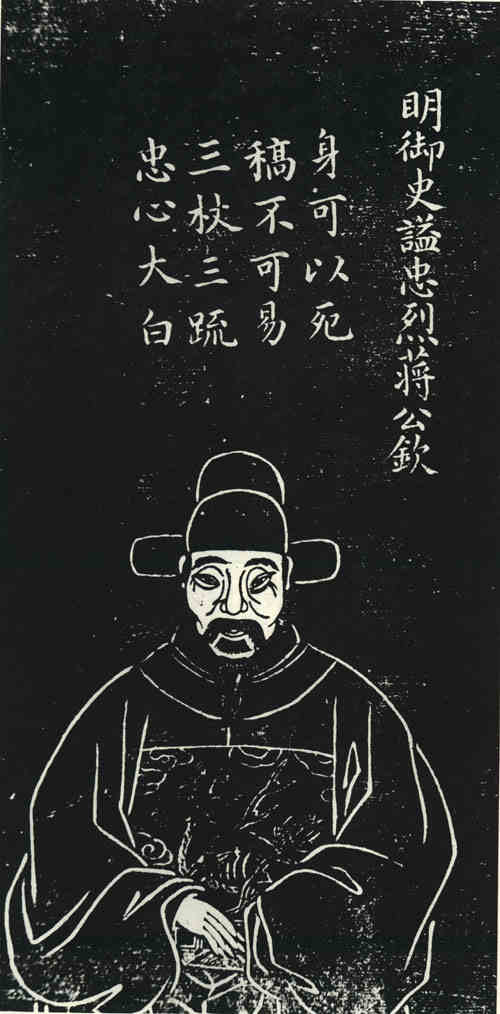 明御史謚忠烈蔣公欽
身可以死
稿不可易
三杖三疏
忠心大白